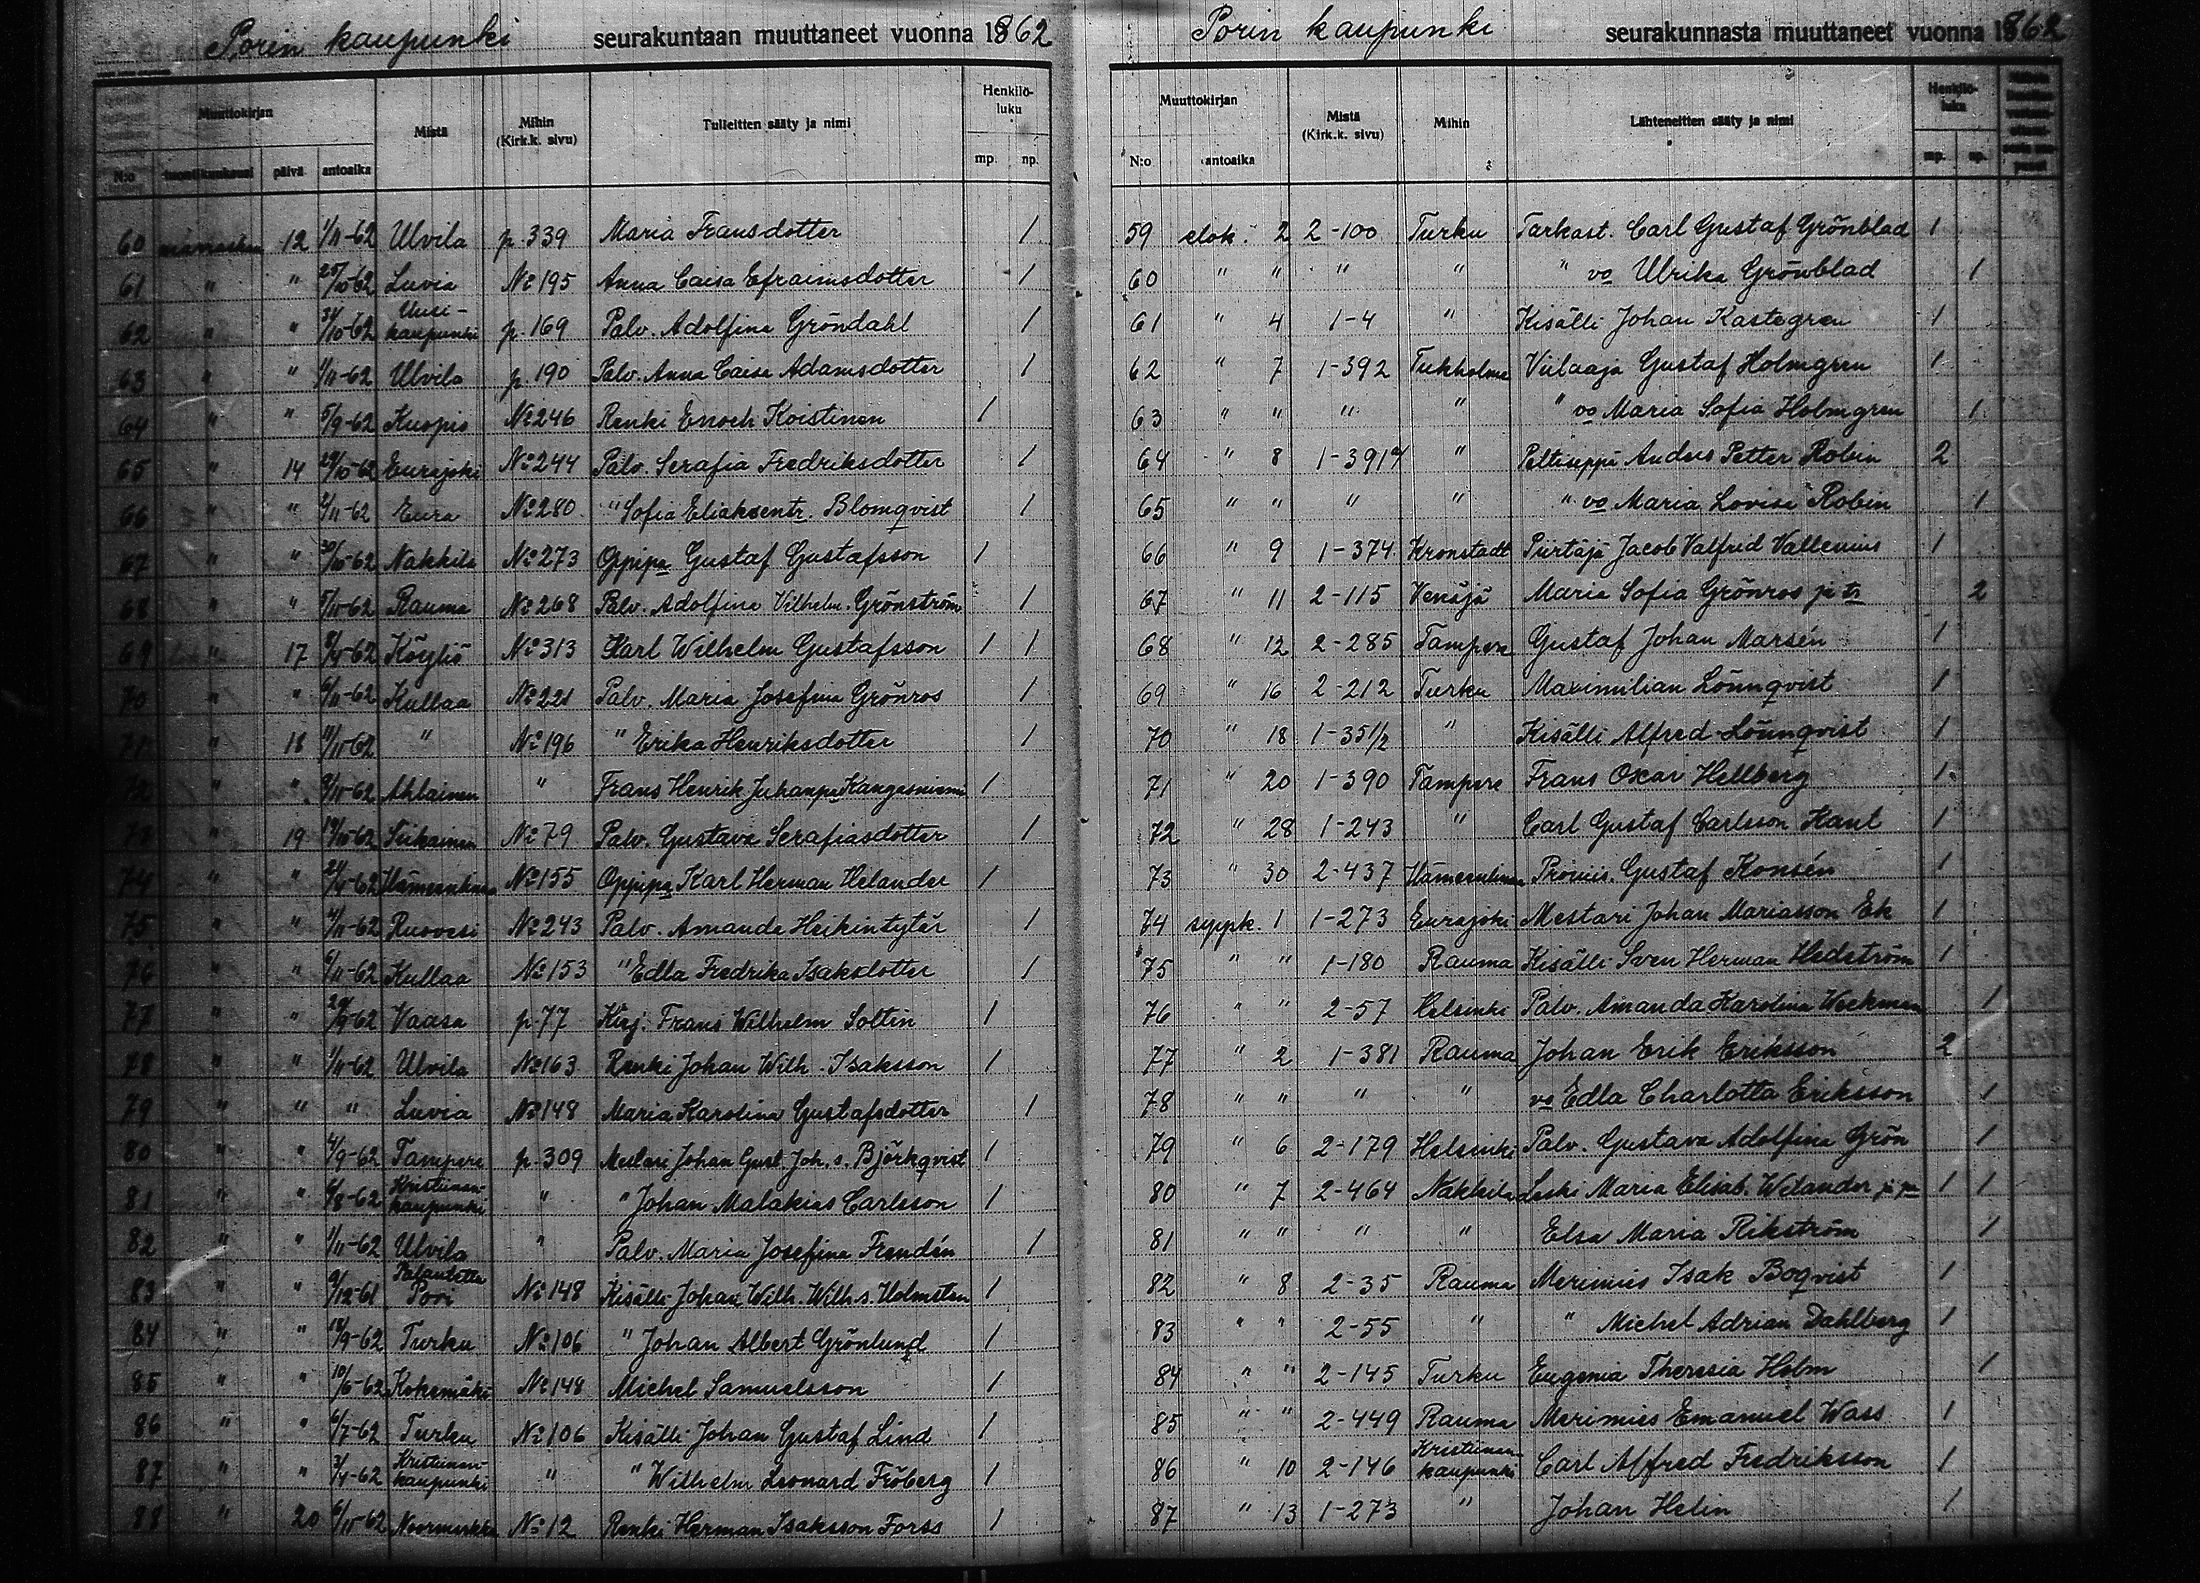 Porin kaupunki seurakuntaan muuttaneet vuonna 1862
Muuttokirjan Mistä Mihin (Kirk.k. sivu) Tulleitten sääty ja nimi Henkilö-luku
N:o päivä antoaika mp. np.
60 marraskuu 12 1/11-62 Ulvila p. 339 Maria Fransdotter 1
61 " " 25/10-62 Luvia No 195 Anna Caisa Efraimsdotter 1
62 " " 31/10-62 Uusi-kaupunki p. 169 Palv. Adolfina Gröndahl 1
63 " " 1/11-62 Ulvila p. 190 Palv. Anna Caisa Adamsdotter 1
64 " " 5/9-62 Kuopio No 246 Renki Enoch Koistinen 1
65 " 14 29/10-62 Eurajoki No 244 Palv. Serafia Fredriksdotter 1
66 " " 2/11-62 Eura No 280 " Sofia Eliaksentr. Blomqvist 1
67 " " 30/10-62 Nakkila No 273 Oppipa Gustaf Gustafsson 1
68 " " 5/11-62 Rauma No 268 Palv. Adolfina Vilhelm. Grönström 1
69 " 17 Köyliö No 313 Karl Wilhelm Gustafsson 1 1
70 " " 6/11-62 Kullaa No 221 Palv. Maria Josefina Grönros 1
71 " 18 11/11-62 " No 196 " Erika Henriksdotter 1
72 " " 8/11-62 Ahlainen " Frans Henrik Juhanpa Kangasniemi 1
73 " 19 19/10-62 Siikainen No 79 Palv. Gustava Serafiasdotter 1
74 " " Hämeenlinna No 155 Oppipa Karl Herman Helander 1
75 " " 4/11-62 Ruovesi No 243 Palv. Amanda Heikintytär 1
76 " " 6/11-62 Kullaa No 153 " Edla Fredrika Isaksdotter 1
77 " " 29/9-62 Vaasa p. 77 Kirj. Frans Wilhelm Soltin 1
78 " " 1/11-62 Ulvila No 163 Renki Johan Wilh. Isaksson 1
79 " " " Luvia No 148 Maria Karolina Gustafsdotter 1
80 " " 4/9-62 Tampere p. 309 Mestari Johan Gust. Joh. s. Björkqvist 1
81 " " 6/8-62 Kristiinan-kaupunki " " Johan Malakias Carlsson 1
82 " " 1/11-62 Ulvila " Palv. Maria Josefina Frendén 1
83 " " 9/12-61 Palautettu Pori No 148 Kisälli Johan Wilh. Wilh. s. Holmsten 1
84 " " 18/9-62 Turku No 106 " Johan Albert Grönlund 1
85 " " 10/6-62 Kokemäki No 148 Michel Samuelsson 1
86 " " 6/7-62 Turku No 106 Kisälli Johan Gustaf Lind 1
87 " " 3/4-62 Kristiinan-kaupunki " " Wilhelm Leonard Fröberg 1
88 " 20 6/11-62 Noormarkku No 12 Renki Herman Isaksson Forss 1
Porin kaupunki seurakunnasta muuttaneet vuonna 1862
Muuttokirjan Mistä (Kirk.k. sivu) Mihin Lähteneitten sääty ja nimi Henkilö-luku
N:o antoaika mp. np.
59 elok. 2 2-100 Turku Tarkast. Carl Gustaf Grönblad 1
60 " " " " " vo Ulrika Grönblad 1
61 " 4 1-4 " Kisälli Johan Kastegren 1
62 " 7 1-392 Tukholma Viilaaja Gustaf Holmgren 1
63 " " " " " vo Maria Sofia Holmgren 1
64 " 8 1-391 " Peltiseppä Anders Petter Robin 2
65 " " " " " vo Maria Lovisa Robin 1
66 " 9 1-374 Kronstadt Piirtäjä Jacob Valfrid Vallenius 1
67 " 11 2-115 Venäjä Maria Sofia Grönros ja tr 2
68 " 12 2-285 Tampere Gustaf Johan Marsén 1
69 " 16 2-212 Turku Maximilian Lönnqvist 1
70 " 18 1-351/2 " Kisälli Alfred Lönnqvist 1
71 " 20 1-390 Tampere Frans Oscar Hellberg 1
72 " 28 1-243 " Carl Gustaf Carlsson Hant 1
73 " 30 2-437 Hämeenlinna Gustaf Konsén 1
74 syysk. 1 1-273 Eurajoki Mestari Johan Mariasson Ek 1
75 " " 1-180 Rauma Kisälli Sven Herman Hedström 1
76 " " 2-57 Helsinki Palv. Amanda Karolina Weckman 1
77 " 2 1-381 Rauma Johan Erik Eriksson 2
78 " " " " vo Edla Charlotta Eriksson 1
79 " 6 2-179 Helsinki Palv. Gustava Adolfina Grön 1
80 " 7 2-464 Nakkila Leski Maria Elisab. Welander ja pa 1 1
81 " " " " Elsa Maria Rikström 1
82 " 8 2-35 Rauma Merimies Isak Boqvist 1
83 " " 2-55 " " Michel Adrian Dahlberg 1
84 " " 2-145 Turku Eugenia Theresia Holm 1
85 " " 2-449 Rauma Merimies Emanuel Wass 1
86 " 10 2-146 Kristiinan-kaupunki Carl Alfred Fredriksson 1
87 " 13 1-273 " Johan Helin 1